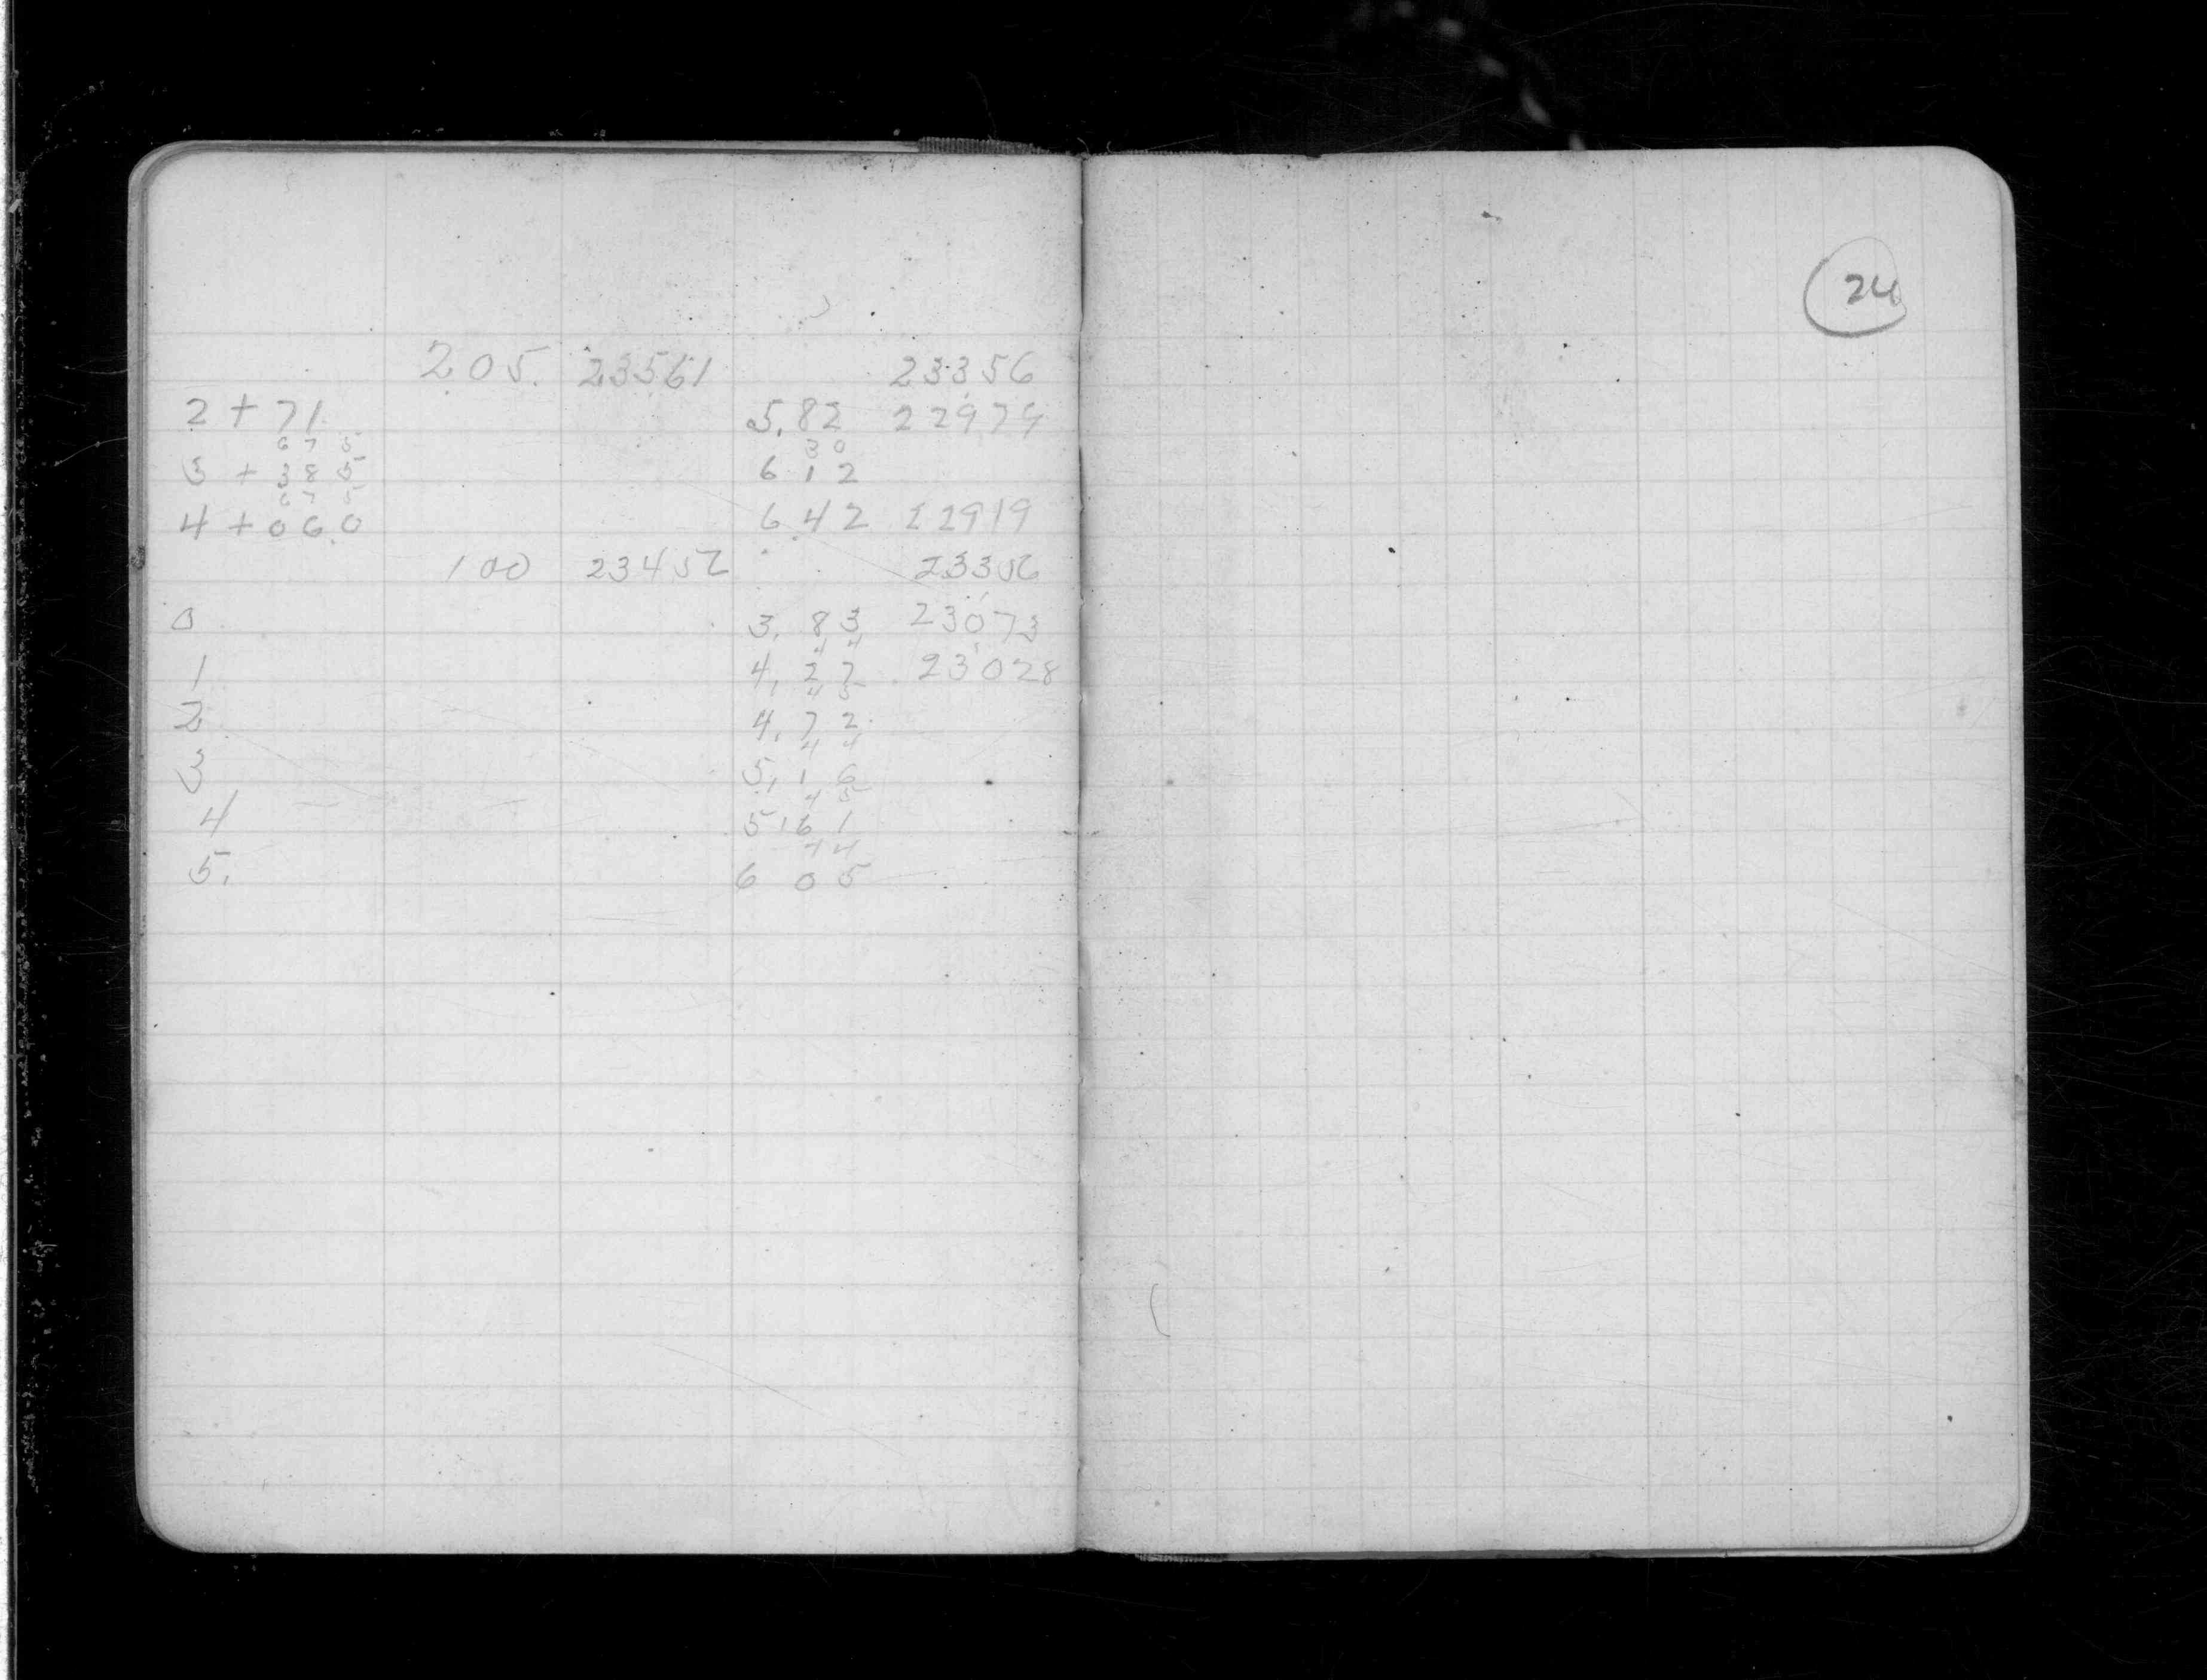 205. 23561 23356
2 + 71. 5.82 22974
67 5 30
3 + 38 5 6 12
67 5
4 + 06.0 6 42 22919
100 23456 23356
0 3. 83 23073
44
1 4. 27 23028
45
2 4. 72
44
3 5. 16
45
4 5.61
44
5. 6 05
24